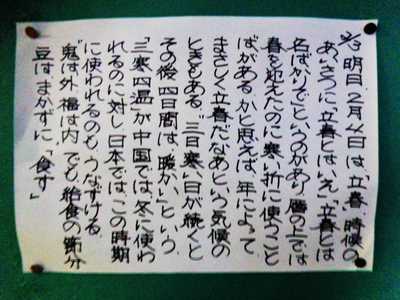 2/3 明日2月4日は「立春」時候の
あいさつに「立春とはいえ」「立春とは
名ばかりで」というのがあり、暦の上では
春を迎えたのに寒い折に使うこと
ばがあるかと思えば、年によって
まさしく立春だなあという気候の
ときもある。「三日寒い日が続くと
その後四日間は、暖かい」という
「三寒四温」が中国では、冬に使わ
れるのに対し日本では、この時期
に使われるのも、うなずける。
鬼は外 福は内 でも給食の節分
豆は、まかずに、"食す"